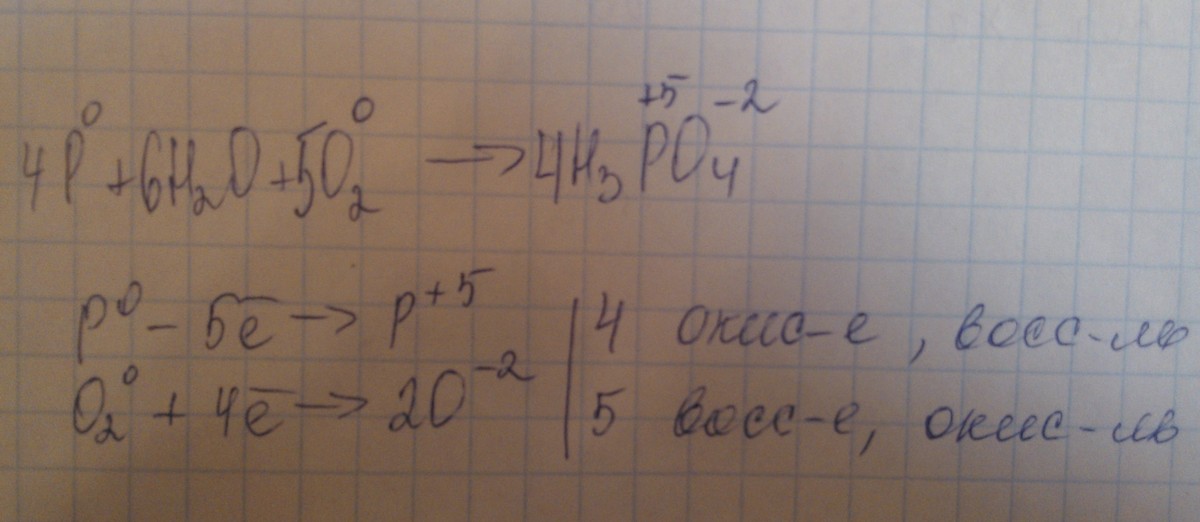 4P⁰ + 6H₂O + 5O₂⁰ → 4H₃P⁺⁵O₄⁻²
P⁰ - 5e̅ → P⁺⁵ | 4 окис-е, восс-ль
O₂⁰ + 4e̅ → 2O⁻² | 5 восс-е, окис-ль